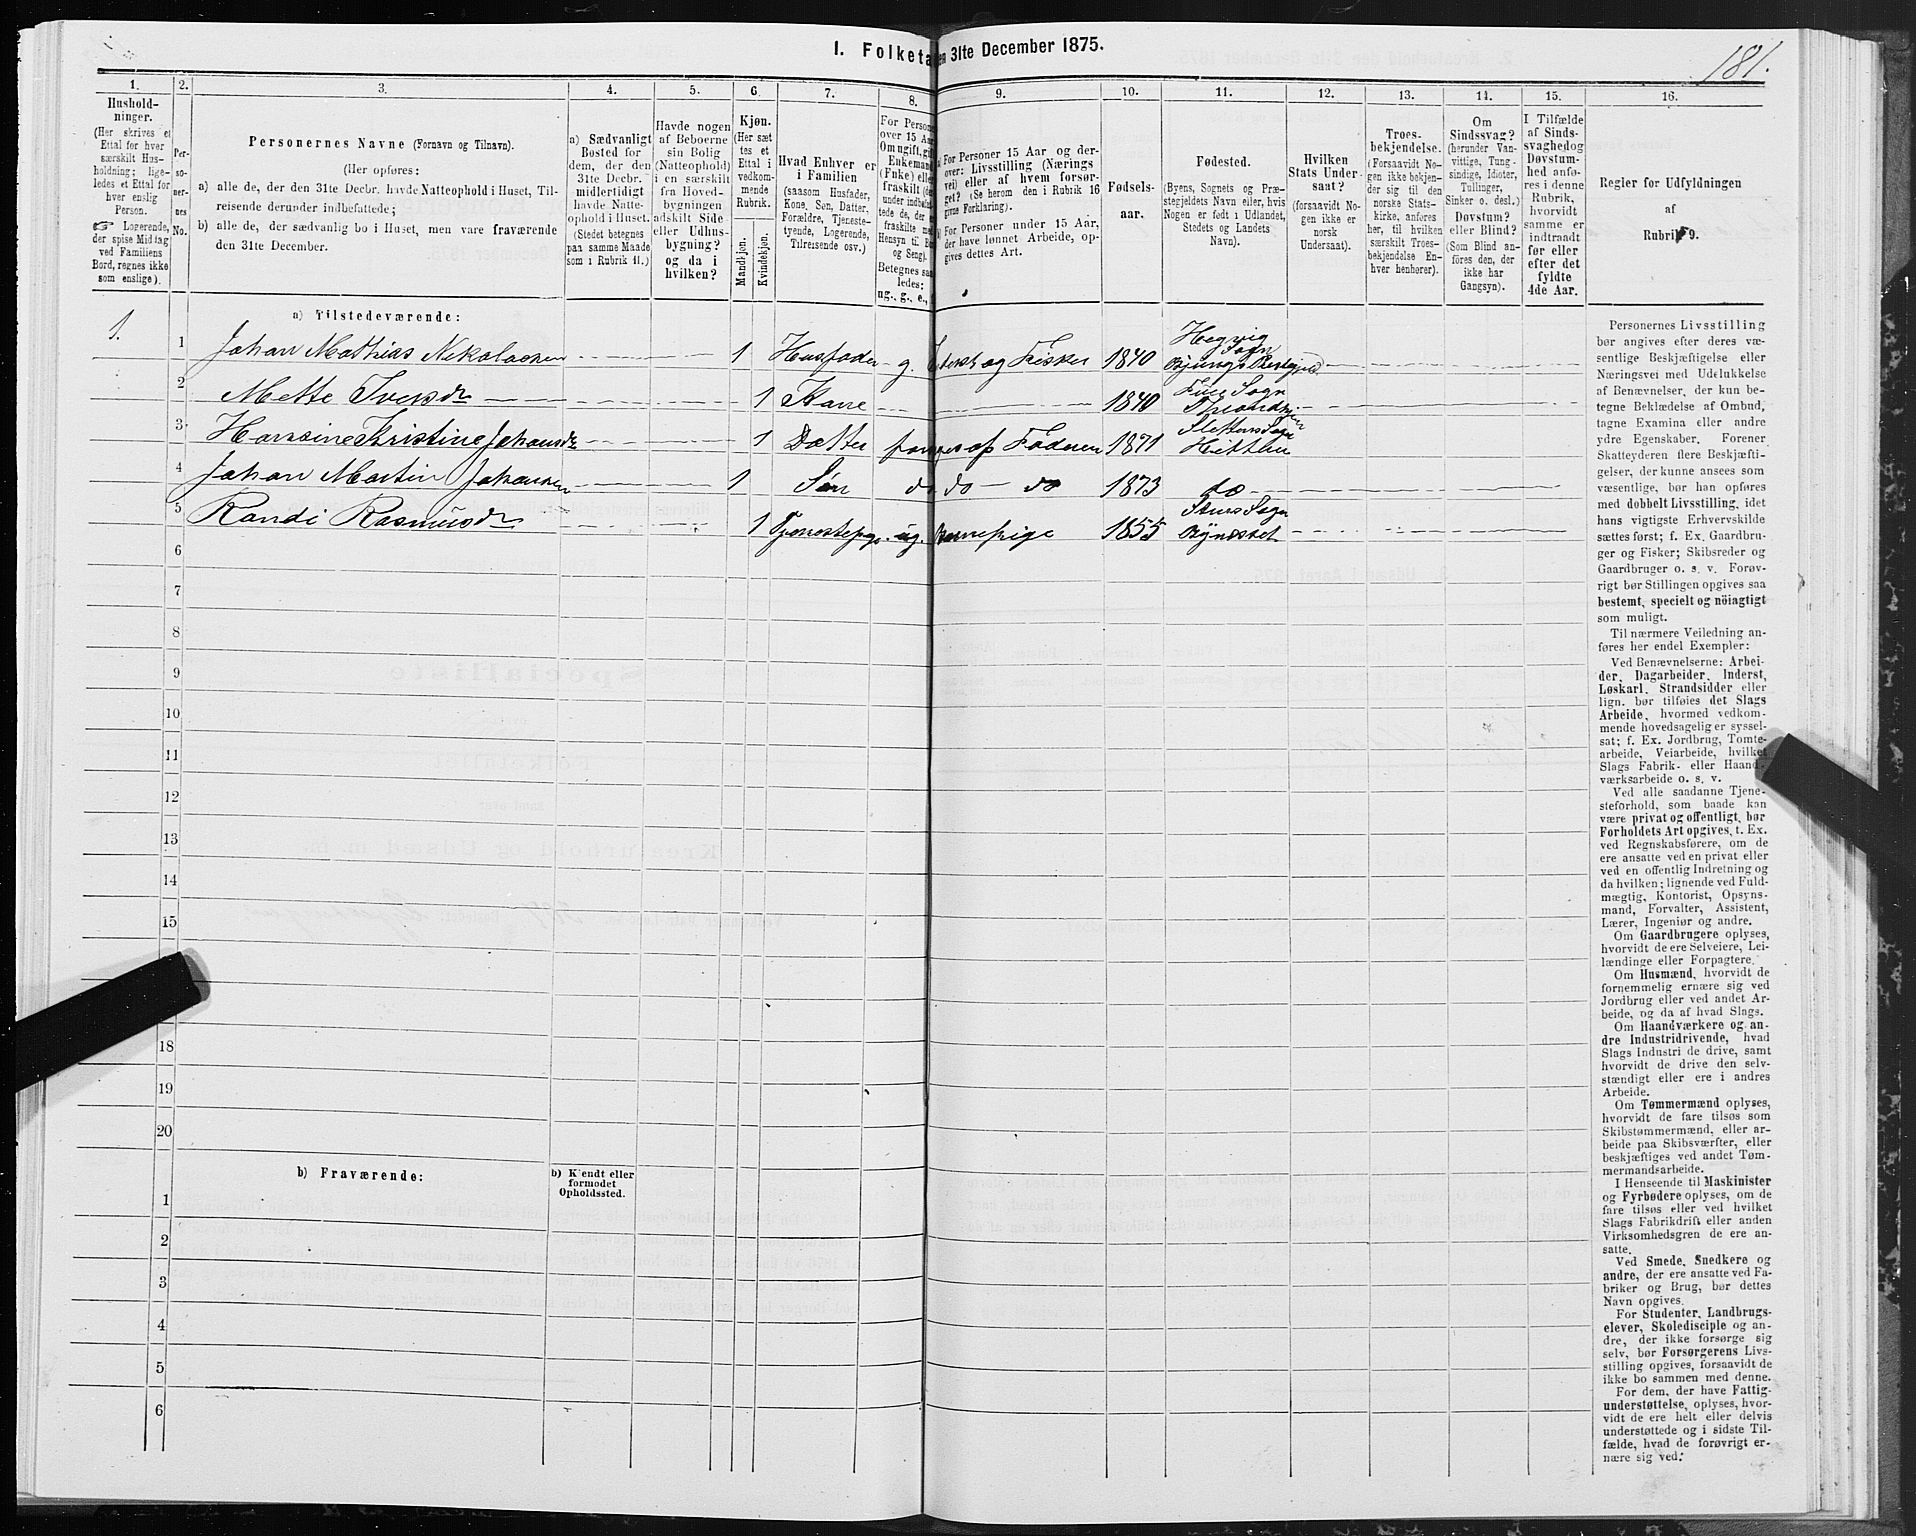 I. Folketa
en 31te December 1875.
181.
1.
2.
3.
4.
5.
6.
7.
8.
9.
10.
11.
12.
13.
14.
15.
16.
Hushold-
ninger.
(Her skrives et
Ettal for hver
særskilt Hus-
holdning; lige-
ledes et Ettal for
hver enslig
Person.
☞ Logerende,
der spise Middag
ved Familiens
Bord, regnes ikke
som enslige).
Per-
so-
ner-
nes
No.
Personernes Navne (Fornavn og Tilnavn).
(Her opføres:
a) alle de, der den 31te Decbr. havde Natteophold i Huset, Til-
reisende derunder indbefattede;
b) alle de, der sædvanlig bo i Huset, men vare fraværende
den 31te December.
a) Sædvanligt
Bosted for
dem, der den
31te Decbr.
midlertidigt
havde Natte-
ophold i Huset.
(Stedet betegnes
paa samme Maade
som i Rubrik 11.)
Havde nogen
af Beboerne
sin Bolig
(Natteophold)
i en særskilt
fra Hoved-
bygningen
adskilt Side-
eller Udhus-
bygning?
og da i
hvilken?
Kjøn.
(Her sæt
tes et
Ettal i
vedkom-
mende
Rubrik.
Mandkjøn.
Kvindekjøn.
Hvad Enhver er
i Familien
(saasom Husfader,
Kone, Søn, Datter,
Forældre, Tjeneste-
tyende, Logerende,
Tilreisende osv.)
For Person
over 15 Aar
Om ugift, gif
Enkemand
(Enke) elle
fraskilt (der
under indbefat-
tede de, der er
fraskilte med
Hensyn til Bo
og Seng).
Betegnes saa
ledes:
ug., g., e.,
For Personer 15 Aar og der-
over: Livsstilling (Nærings
vei) eller af hvem forsør-
get? (Se herom den i Rubrik 16
givne Forklaring).
For Personer under 15 Aar,
der have lønnet Arbeide, op-
gives dettes Art.
Fødsels-
aar.
Fødested.
(Byens, Sognets og Præ-
stegjeldets Navn eller, hvis
Nogen er født i Udlandet,
Stedets og Landets
Navn).
Hvilken
Stats Under-
saat?
(forsaavidt No-
gen ikke er
norsk
Undersaat).
Troes-
bekjendelse.
(Forsaavidt No-
gen ikke bekjen-
der sig til den
norske Stats-
kirke, anføres
her, til hvilken
særskilt Troes-
bekjendelse En-
hver henhører).
Om
Sindssvag?
(herunder Van-
vittige, Tung-
sindige, Idioter,
Tullinger,
Sinker o. desl.)
Døvstum?
eller Blind?
(Som Blind an-
føres den, der
ikke har
Gangsyn).
I Tilfælde
af Sinds-
svaghed og
Døvstum-
hed anfø-
res i denne
Rubrik,
hvorvidt
samme er
indtraadt
før eller
efter det
fyldte
4de Aar.
Regler for Udfyldningen
af
Rubrik 9.
a) Tilstedeværende:
1.
1 Johan Mathias Nikolaisen 1 Husfader g. og Fisker 1840 Sogn
2 Mette Iversdr 1 Kone 1840 Sogn
3 Hansine Kristine Johansdr 1 Datter forsørges af Faderen 1871 Sogn Hitteren
4 Johan Martin Johansen 1 Søn do do do 1873 do
5 Randi Rasmusdr 1 ug. Barnepige 1855 Sogn Bynesset
6
7
8
9
10
11
12
13
14
15
18
19
20
b) Fraværende:
b) Kjendt eller
formodet
Opholdssted.
1
2
3
4
5
6
Personernes Livsstilling
bør angives efter deres væ-
sentlige Beskjæftigelse eller
Næringsvei med Udelukkelse
af Benævnelser, der kun be-
tegne Beklædelse af Ombud,
tagne Examina eller andre
ydre Egenskaber. Forener
Skatteyderen flere Beskjæfti-
gelser, der kunne ansees som
væsentlige, bør han opføres
med dobbelt Livsstilling, idet
hans vigtigste Erhvervskilde
sættes først; f. Ex. Gaardbru-
ger og Fisker; Skibsreder og
Gaardbruger o. s. v. Forøv-
rigt bør Stillingen opgives saa
bestemt, specielt og nöiagtigt
som muligt.
Til nærmere Veiledning an-
føres her endel Exempler:
Ved Benævnelserne: Arbei-
der, Dagarbeider, Inderst,
Løskarl, Strandsidder eller
lign. bør tilføies det Slags
Arbeide, hvormed vedkom-
mende hovedsagelig er syssel-
sat; f. Ex. Jordbrug, Tomte-
arbeide, Veiarbeide, hvilket
Slags Fabrik- eller Haand-
værksarbeide o. s. v.
Ved alle saadanne Tjene-
steforhold, som baade kan
være privat og offentligt, bør
Forholdets Art opgives, t. Ex.
ved Regnskabsførere, om de
ere ansatte ved en privat eller
ved en offentlig Indretning og
da hvilken; lignende ved Fuld-
mægtig, Kontorist, Opsyns-
mand, Forvalter, Assistent,
Lærer, Ingeniør og andre.
Om Gaardbrugere oplyses,
hvorvidt de ere Selveiere, Lei-
lændinge eller Forpagtere.
Om Husmænd, hvorvidt de
fornemmelig ernære sig ved
Jordbrug eller ved andet Ar-
beide, og da af hvad Slags.
Om Haandværkere og an-
dre Industridrivende, hvad
Slags Industri de drive, samt
hvorvidt de drive den selv-
stændigt eller ere i andres
Arbeide.
Om Tømmermænd oplyses,
hvorvidt de fare tilsøs som
Skibstømmermænd, eller ar-
beide paa Skibsværfter, eller
beskjæftiges ved andet Tøm-
mermandsarbeide.
I Henseende til Maskinister
og Fyrbødere oplyses, om de
fare tilsøs eller ved hvilket
Slags Fabrikdrift eller anden
Virksomhedsgren de ere an-
satte.
Ved Smede, Snedkere og
andre, der ere ansatte ved Fa-
briker og Brug, bør dettes
Navn opgives.
For Studenter, Landbrugs-
elever, Skoledisciple og an-
dre, der ikke forsørge sig
selv, bør Forsørgerens Livs-
stilling opgives, forsaavidt de
ikke bo sammen med denne.
For dem, der have Fattig-
understøttelse, oplyses, hvor-
vidt de ere helt eller delvis
understøttede og i sidste Til-
fælde, hvad de forøvrigt er-
nære sig ved.